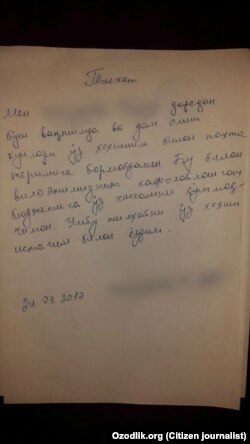 Тилхат
Мен дарсдан
бўш вақтимда ва дам олиш
кунлари ўз хохишим билан пахта
теримига бормоқдаман Бу билан
вилоятимизнинг кафолатланган
бюджетига ўз хиссамни қўшмоқ-
чиман. Ушбу тилхатни ўз хохиш
истагим билан ёздим.
24.09.2017
Ozodlik.org (Citizen journalist)